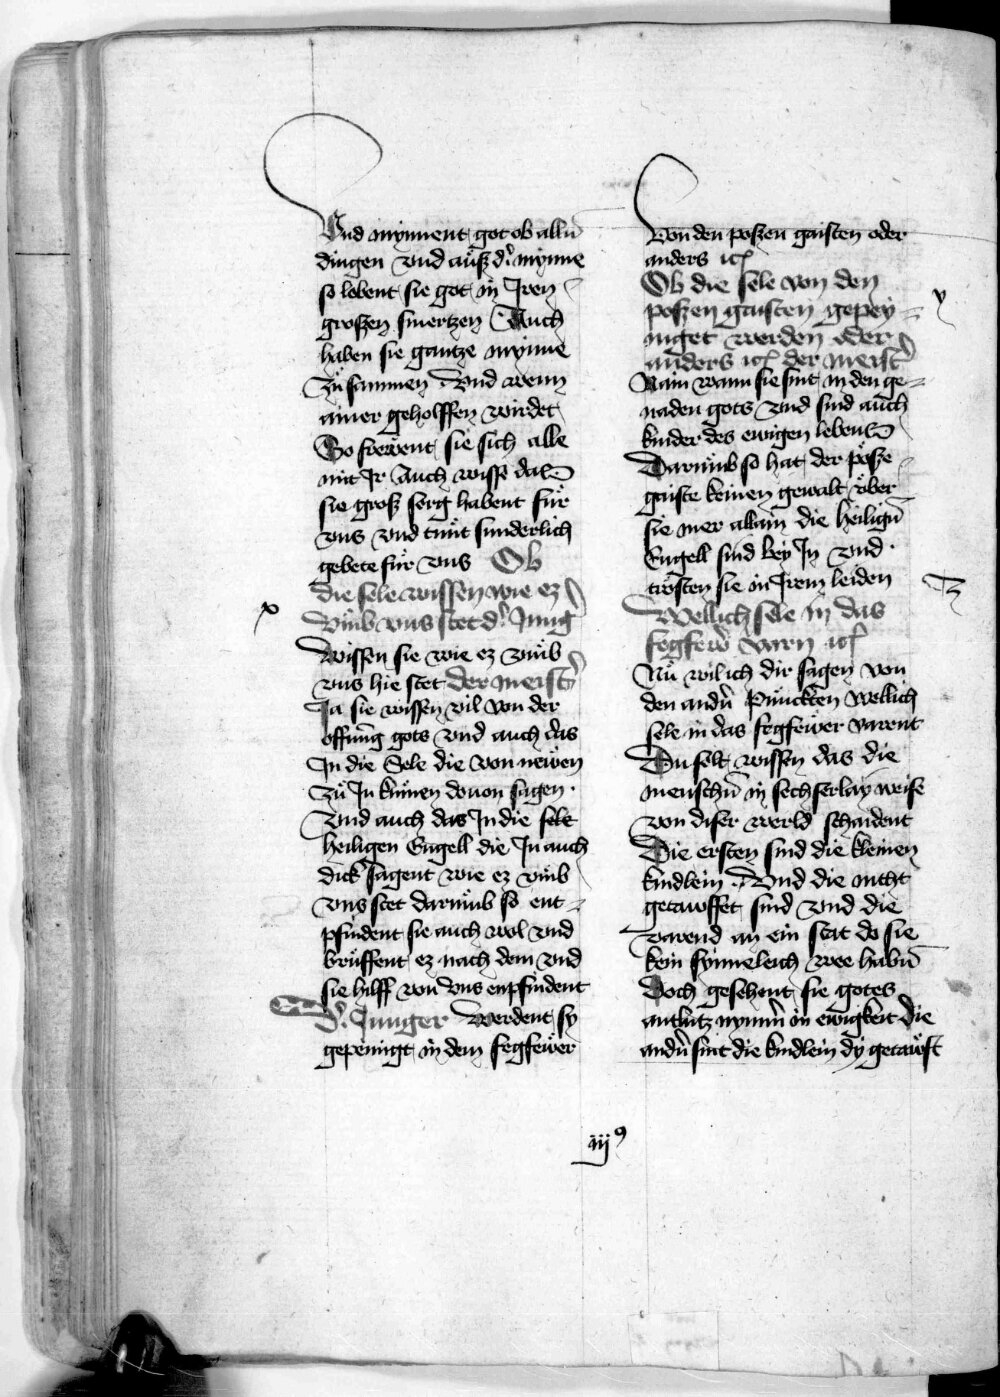 Vnd mynnent got ob alln̄
dingen vnd auß d'. mynne
so lobent sie got in Iren
großen smertzen Auch
haben sie gantze mynne
zů sammen Vnd wenn
ainer geholffen wirdet
So frewent sie sich alle
mit Ir Auch wiss das
sie groß sorg habent für
vns vnd tunt sunderlich
gebete für vns Ob
die sele wissen wie ez
x
vmb vns stet d'. Jung
Wissen sie wie ez vmb
vns hie stet der meist'
Ja sie wissen vil von der
offnūg gots vnd auch das
In die Sele die von newen
zů In kumen dovon sagen.
Vnd auch das In die sele
heiligen Engell die In auch
dick sagent wie ez vmb
vns stet darumb so ent=
pfindent sie auch wol vnd
brüffent ez nach dem vnd
sie hilff von vns enpfindent
d'. Junger Werdent sy
gepeinigt in dem fegfewer
Von den poßen gaisten oder
anders ꝛcꝭ
Ob die sele von den
y
poßen gaisten gepey=
niget werden oder
anders ꝛcꝭ der meist'
Nain wann sie sint in den ge=
naden gots vnd sind auch
kinder des ewigen lebens
Darumb so hat der poße
gaiste keinen gewalt vber
sie mer allain die heilign̄
Engell sind bey In vnd.
trösten sie in Irem leiden
z
Wellich sele in das
fegfew' varn ꝛcꝭ
Nu wil ich dir sagen von
den andn̄ Punckten Wellich
sele in das fegfewer varent
Du solt wissen das die
menschn̄ in sechserlay weise
von diser werld schaident
Die ersten sind die kleinen
kindlein Vnd die nicht
getawffet sind vnd die
varend an ein stat do sie
kein synneleich wee habn̄
Doch gesehent sie gotes
antlutz nymm' in ewigkeit Die
andn̄ sint die kindlein dy getawft
iijꝰ